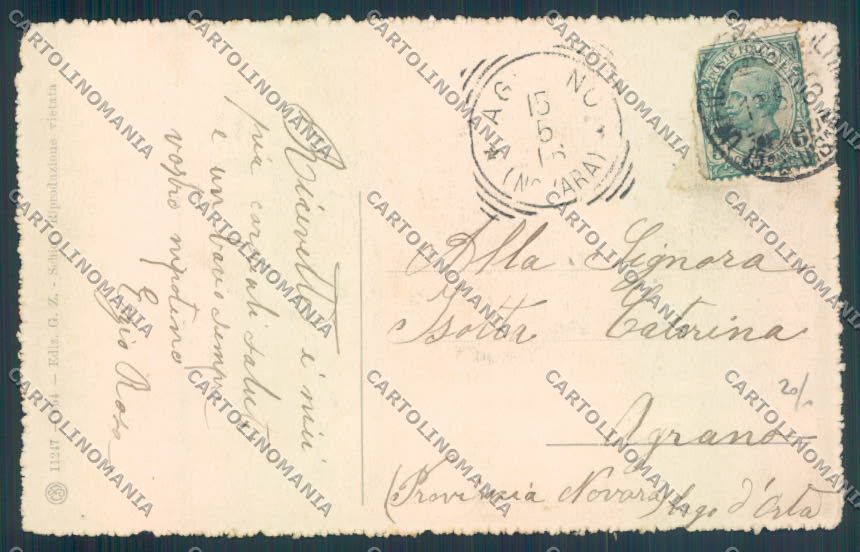 Ricevette i miei
più cordiali saluti
e un bacio sempre
vostro nipotino
Egizio Rosa
Alla Signora
Isotta Caterina
Agrano
(Provincia Novara) lago d'Orta
20/-
AG NO
15
5
(NOVARA)
11247 — Ediz. G. Z. - Riproduzione vietata
CARTOLINOMANIA